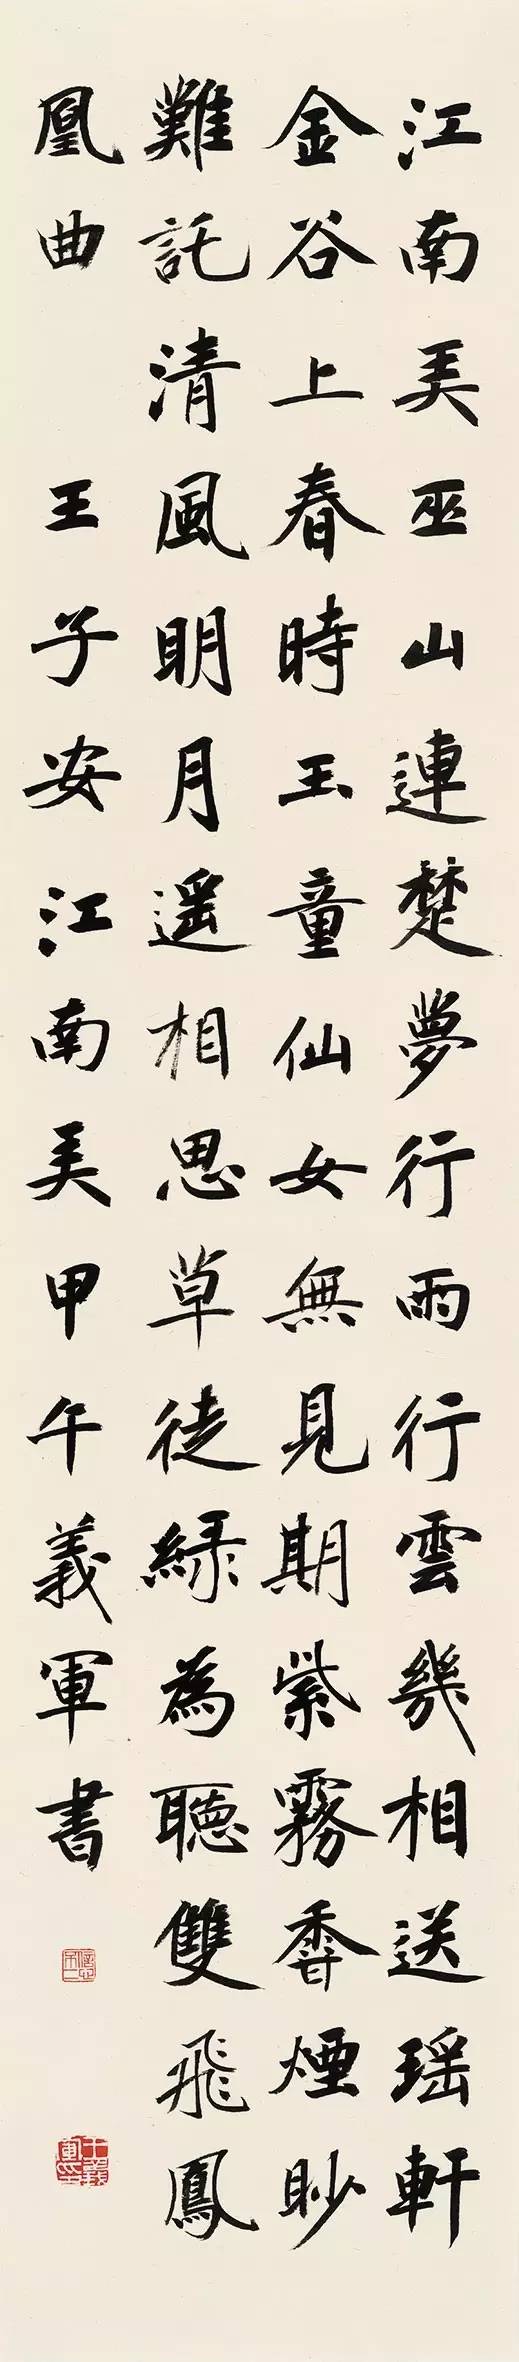 江南美巫山連楚夢行雨行雲幾相送瑶軒
金谷上春時玉童仙女無見期紫霧香煙眇
難託清風明月遥相思草徒緑為聽雙飛鳳
凰曲 王子安江南美甲午義軍書